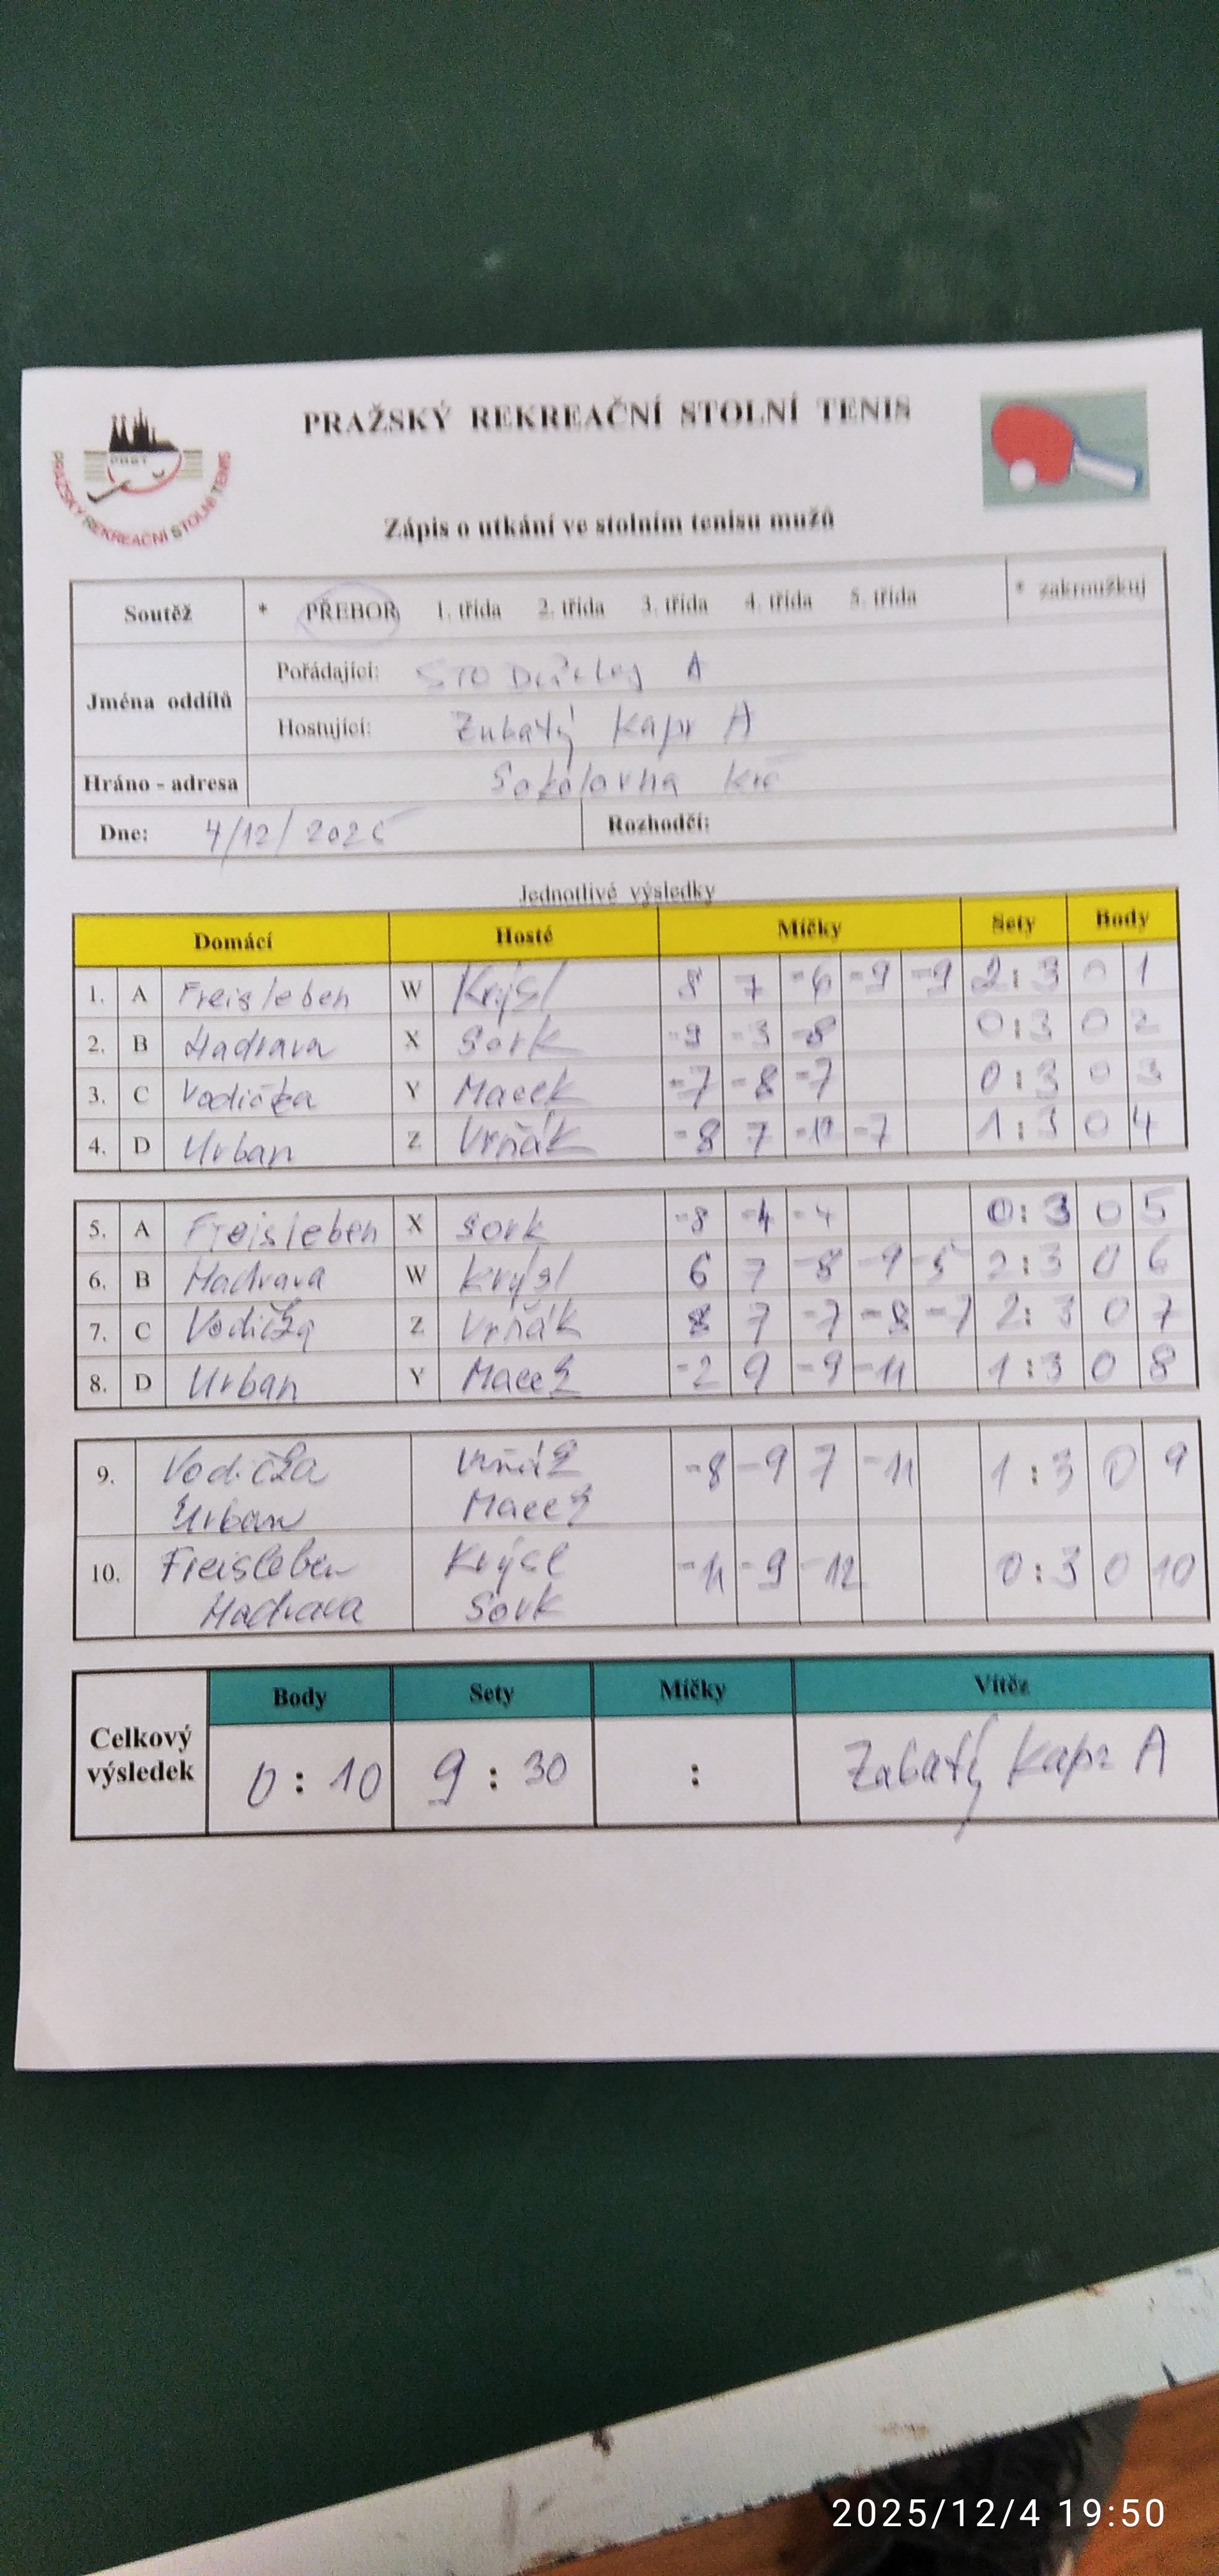 PRAŽSKÝ REKREAČNÍ STOLNÍ TENIS
PRAŽSKÝ REKREAČNÍ STOLNÍ TENIS
Zápis o utkání ve stolním tenisu mužů
Soutěž * PŘEBOR 1. třída 2. třída 3. třída 4. třída 5. třída * zakroužkuj
Jména oddílů
Pořádající: STO A
Hostující: Zubatý Kapr A
Hráno - adresa Sokolovna Krč
Dne: 4/12/2025 Rozhodčí:
Jednotlivé výsledky
Domácí Hosté Míčky Sety Body
1. A Freisleben W Krýsl 8 7 -6 -9 -9 2:3 0 1
2. B Hadrava X Sork -9 -3 -8 0:3 0 2
3. C Vodička Y Macek -7 -8 -7 0:3 0 3
4. D Urban Z Vrňák -8 7 -10 -7 1:3 0 4
5. A Freisleben X Sork -8 -4 -4 0:3 0 5
6. B Hadrava W Krýsl 6 7 -8 -9 -5 2:3 0 6
7. C Vodička Z Vrňák 8 7 -7 -8 -7 2:3 0 7
8. D Urban Y Macek -2 9 -9 -11 1:3 0 8
9. Vodička Vrňák -8 -9 7 -11 1:3 0 9
Urban Macek
10. Freisleben Krýsl -11 -9 -12 0:3 0 10
Hadrava Sork
Body Sety Míčky Vítěz
Celkový výsledek 0:10 9:30 : Zubatý Kapr A
2025/12/4 19:50